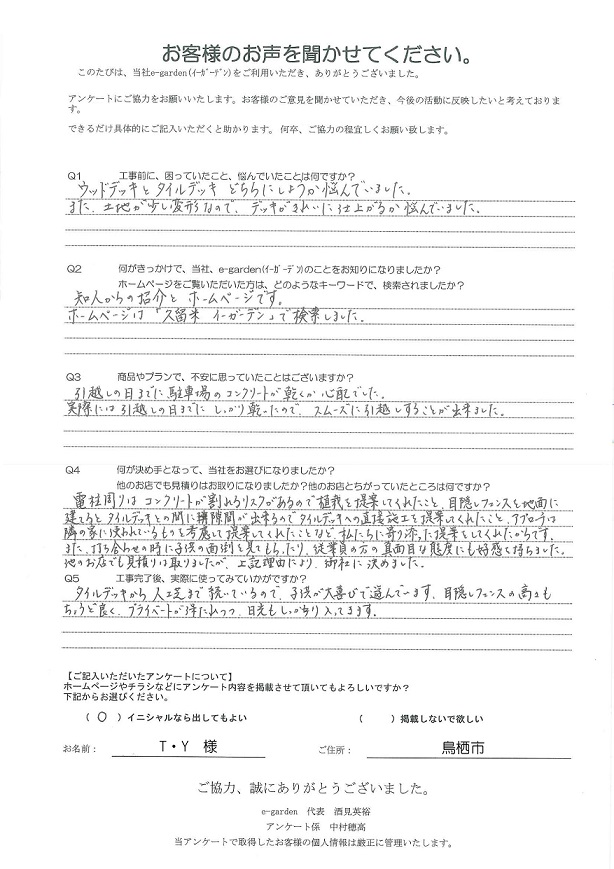 お客様のお声を聞かせてください。
このたびは、当社e-garden(ｲｰｶﾞｰﾃﾞﾝ)をご利用いただき、ありがとうございました。
アンケートにご協力をお願いいたします。お客様のご意見を聞かせていただき、今後の活動に反映したいと考えておりま
す。
できるだけ具体的にご記入いただくと助かります。 何卒、ご協力の程宜しくお願い致します。
Q1 工事前に、困っていたこと、悩んでいたことは何ですか？
ウッドデッキとタイルデッキ どちらにしようか悩んでいました。
また、土地が少し変形なので、デッキがきれいに仕上がるか悩んでいました。
Q2 何がきっかけで、当社、e-garden(ｲｰｶﾞｰﾃﾞﾝ)のことをお知りになりましたか？
ホームページをご覧いただいた方は、どのようなキーワードで、検索されましたか？
知人からの紹介と ホームページです。
ホームページは 「久留米 イーガーデン」で検索しました。
Q3 商品やプランで、不安に思っていたことはございますか？
引越しの日までに 駐車場のコンクリートが乾くか心配でした。
実際には引越しの日までに しっかり乾いたので、スムーズに引越しすることが出来ました。
Q4 何が決め手となって、当社をお選びになりましたか？
他のお店でも見積りはお取りになりましたか？他のお店とちがっていたところは何ですか？
電柱周りは コンクリートが割れるリスクがあるので植栽を提案してくれたこと、目隠しフェンスを地面に
建てるとタイルデッキとの間に隙間が出来るのでタイルデッキへの直接施工を提案してくれたこと、アプローチは
隣の家に使われているものを考慮して提案してくれたことなど、私たちに寄り添った提案をしてくれたからです。
また、打ち合わせの時に子供の面倒を見てもらったり、従業員の方の真面目な態度にも好感を持ちました。
他のお店でも見積りは取りましたが、上記理由により、御社に決めました。
Q5 工事完了後、実際に使ってみていかがですか？
タイルデッキから人工芝まで続いているので、子供が大喜びで遊んでいます。目隠しフェンスの高さも
ちょうど良く、プライベートが保たれつつ、日光もしっかり入ってきます。
【ご記入いただいたアンケートについて】
ホームページやチラシなどにアンケート内容を掲載させて頂いてもよろしいですか？
下記からお選びください。
（ ○ ）イニシャルなら出してもよい （ ）掲載しないで欲しい
お名前： T・Y 様 ご住所： 鳥栖市
ご協力、誠にありがとうございました。
e-garden 代表 酒見英裕
アンケート係 中村穂高
当アンケートで取得したお客様の個人情報は厳正に管理いたします。